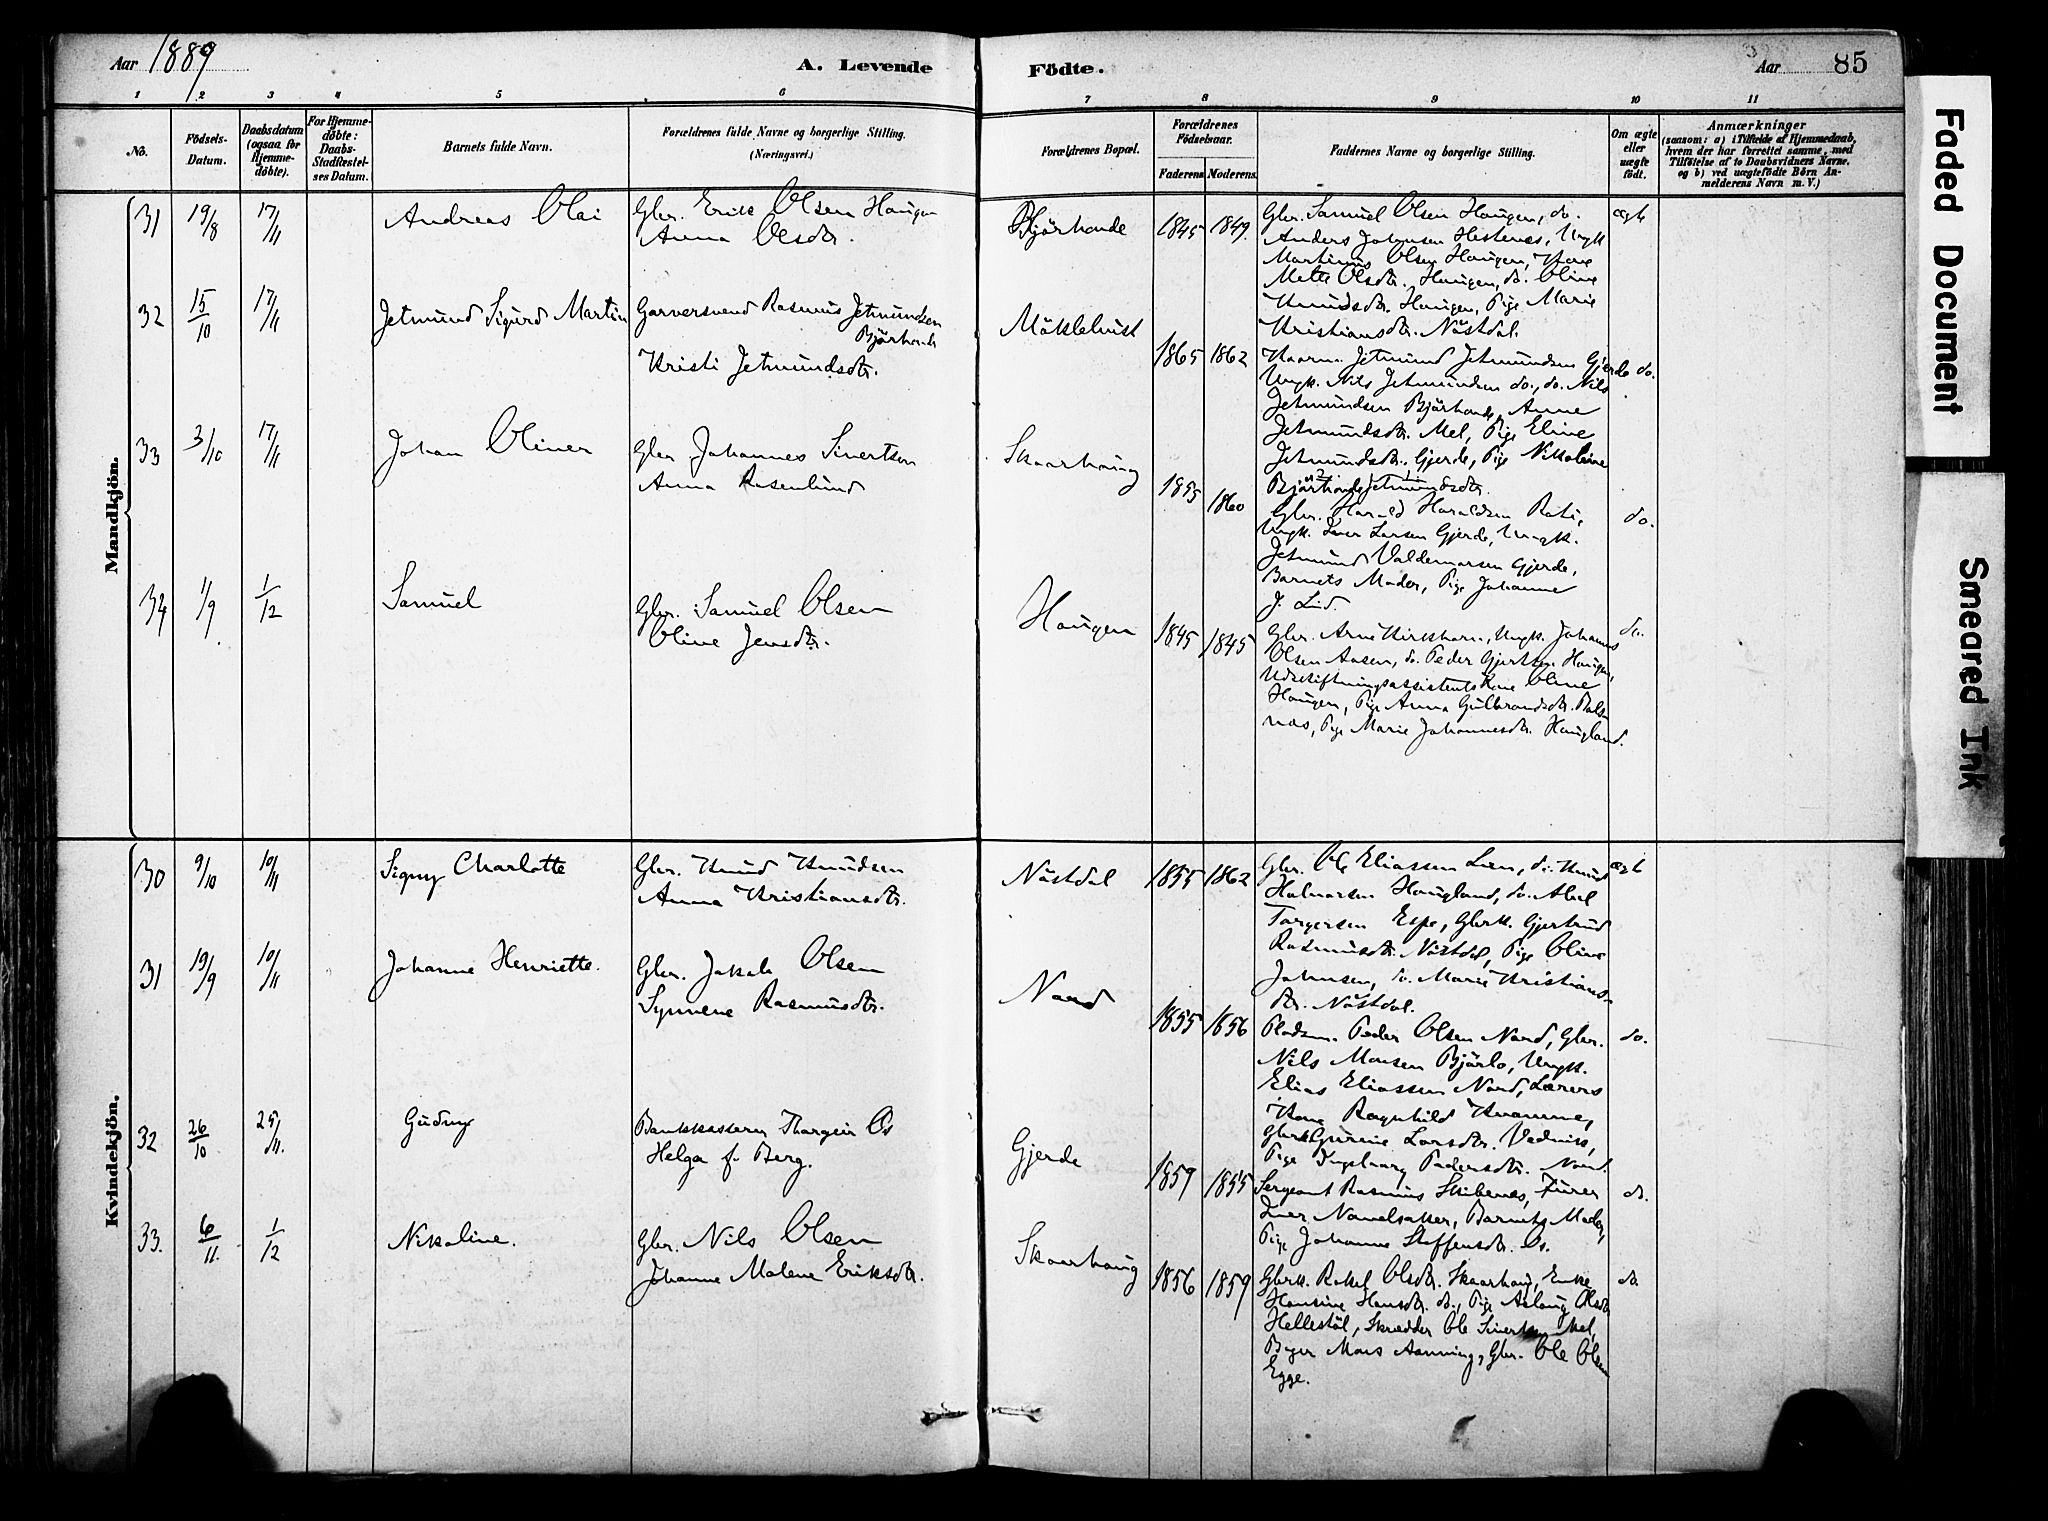 Aar 1889
A. Levende
Födte.
Aar
85
1 2 3 4 5 6 7 8 9 10 11
No.
Födsels-Datum.
Daabsdatum (ogsaa for Hjemme-döbte).
For Hjemme-döbte: Daabs-Stadfæstel-ses Datum.
Barnets fulde Navn.
Forældrenes fulde Navne og borgerlige Stilling. (Næringsvei.)
Forældrenes Bopæl.
Forældrenes Födselsaar.
Faderens
Moderens.
Faddernes Navne og borgerlige Stilling.
Om ægte eller uægte födt.
Anmærkninger
(saasom: a) i Tilfælde af Hjemmedaab, hvem der har forrettet samme, med Tilföielse af to Daabsvidners Navne, og b) ved uægtefödte Börn An-melderens Navn m. V.)
Mandkjön.
31 19/8 17/11 Andreas Olai
Gbr. Erik Olsen Haugen
Anna Olsdtr.
Bjørhovde 1845 1849
Gbr. Samuel Olsen Haugen, do.
Anders Johansen Hestenes, Ungk.
Martinus Olsen Haugen, Kone
Mette Olsdtr. Haugen, do. Oline
Knudsdtr. Haugen, Pige Marie
Kristiansdtr. Nöstdal.
ægte
32 15/10 17/11 Jetmund Sigurd Martin
Garversvend Rasmus Jetmundsen
Bjørhovde
Kristi Jetmundsdtr.
1865 1862
Kaarm. Jetmund Jetmundsen Gjerde
Ungk. Nils Jetmundsen do., do. Nils
Jetmundsen Bjørhovde, Anne
Jetmundsdtr. Mel, Pige Eline
Jetmundsdtr. Gjerde, Pige Nikoline
Bjørhovde Jetmundsdtr.
do.
33 3/10 17/11 Johan Oliner
Gbr. Johannes Sivertsen
Anna Rosenlund
Skaarhaug 1855 1860
Gbr. Harald Haraldsen Roti,
Ungk. Iver Larsen Gjerde, Ungk.
Jetmund Valdemarsen Gjerde,
Barnets Moder, Pige Johanne
J. Lid.
do.
34 1/9 1/12 Samuel
Gbr. Samuel Olsen
Oline Jensdtr.
Haugen 1845 1845
Gbr. Arne Kirkhorn, Ungk. Johannes
Olsen Aasen, do. Peder Gjertsen Haugen,
Udskiftningsassistents Kone Oline
Haugen, Pige Anna Gulbrandsdtr.
Pige Marie Johannesdtr. Haugland.
do.
Kvindekjön.
30 9/10 10/11 Signy Charlotte
Gbr. Knud Knudsen
Anna Kristiansdtr.
Nöstdal 1855 1862
Gbr. Ole Eliassen Lien, do. Knud
Haugland, do. Abel
Torgersen Espe, Gbrk. Gjertrud
Rasmusdtr. Nöstdal, Pige Oline
Johnsen, do. Marie Kristians-
dtr. Nöstdal.
ægte
31 19/9 10/11 Johanne Henriette.
Gbr. Jakob Olsen
Synneve Rasmusdtr.
Nord 1855 1856
Pladsm. Peder Olsen Nord, Gbr.
Nils Monsen Bjørlo, Ungk.
Elias Eliassen Nord, Lærers
Kone Ragnhild Kvamme,
Gbrk. Gurine Larsdtr.
Pige Ingeborg Pedersdtr. Nord.
do.
32 26/10 25/11. Gudny
Bankkasserer Thorgeir Os
Helga f. Berg.
Gjerde 1859 1855
Sergeant Rasmus Skibenes, Furer
Iver Navelsaker, Barnets Moder,
Pige Johanne Steffensdtr. Os.
do.
33. 6/11. 1/12 Nikoline.
Gbr. Nils Olsen
Johanne Malene Eriksdtr.
Skaarhaug 1856 1859
Gbrk. Rakel Olsdtr. Skaarhaug, Enke
Hansine Hansdtr. do., Pige Aslaug Olsdtr.
Hellestöl, Skrædder Ole Sivertsen Mel,
Mons Aanning, Gbr. Ole Olsen
Egge.
do.
Faded Document
Smeared Ink